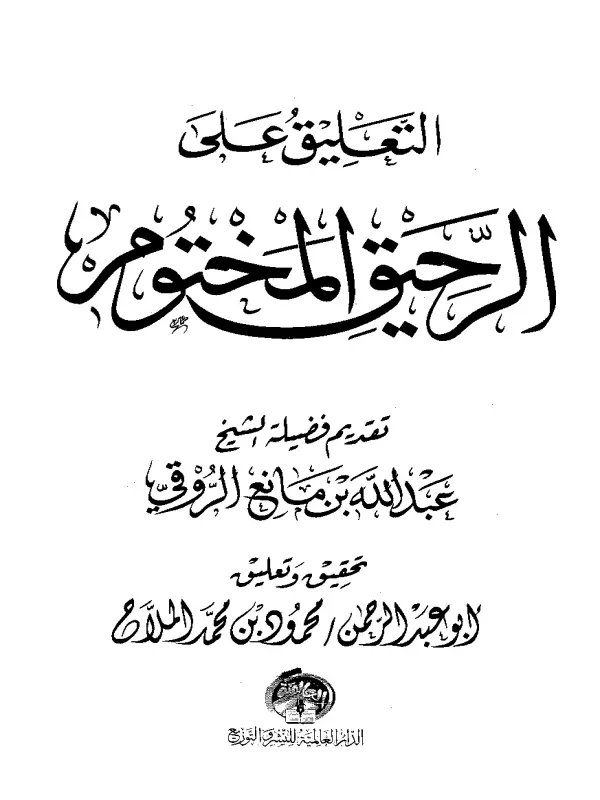 التَّعْلِيقُ عَلَى
الرَّحِيقِ المَخْتُومِ
تقديم فضيلة الشيخ
عَبْدُ اللَّه بْن مَانِع الرُّوقِي
تحقيق وتعليق
أبو عبد الرحمن / محمود بن محمد الملاح
العالمية
الدار العالمية للنشر والتوزيع